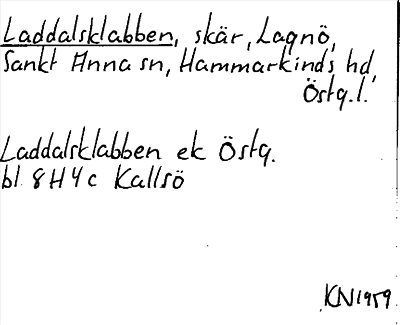 Laddalsklabben, skär, Lagnö,
Sankt Anna sn, Hammarkinds hd,
Östg.l.
Laddalsklabben ek Östg.
bl 8H4c Kallsö
KN1959